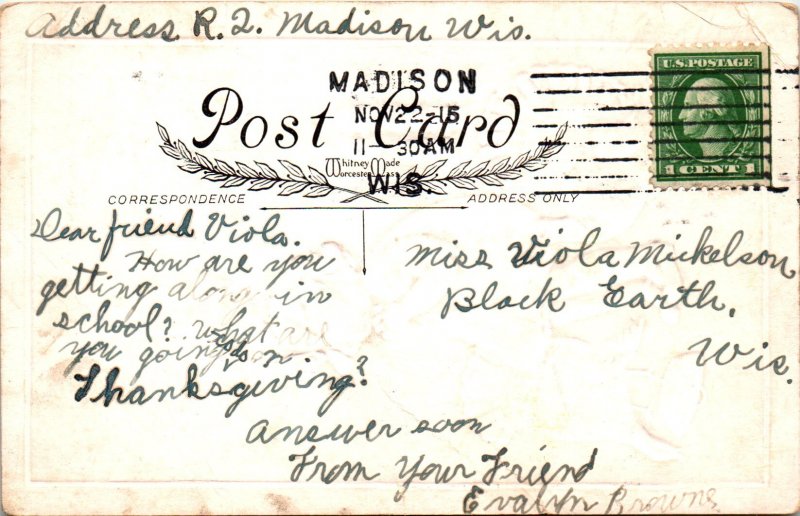 Address R. 2. Madison Wis.
MADISON
NOV 22-15
11-30AM
WIS.
U.S. POSTAGE
1 CENT 1
Post Card
Whitney Made
Worcester, Mass
CORRESPONDENCE
ADDRESS ONLY
Dear friend Viola.
How are you
getting along in
school? What are
you going to do on
Thanksgiving?
Answer soon
From Your Friend
Evalyn Browne
Miss Viola Mickelson
Black Earth,
Wis.